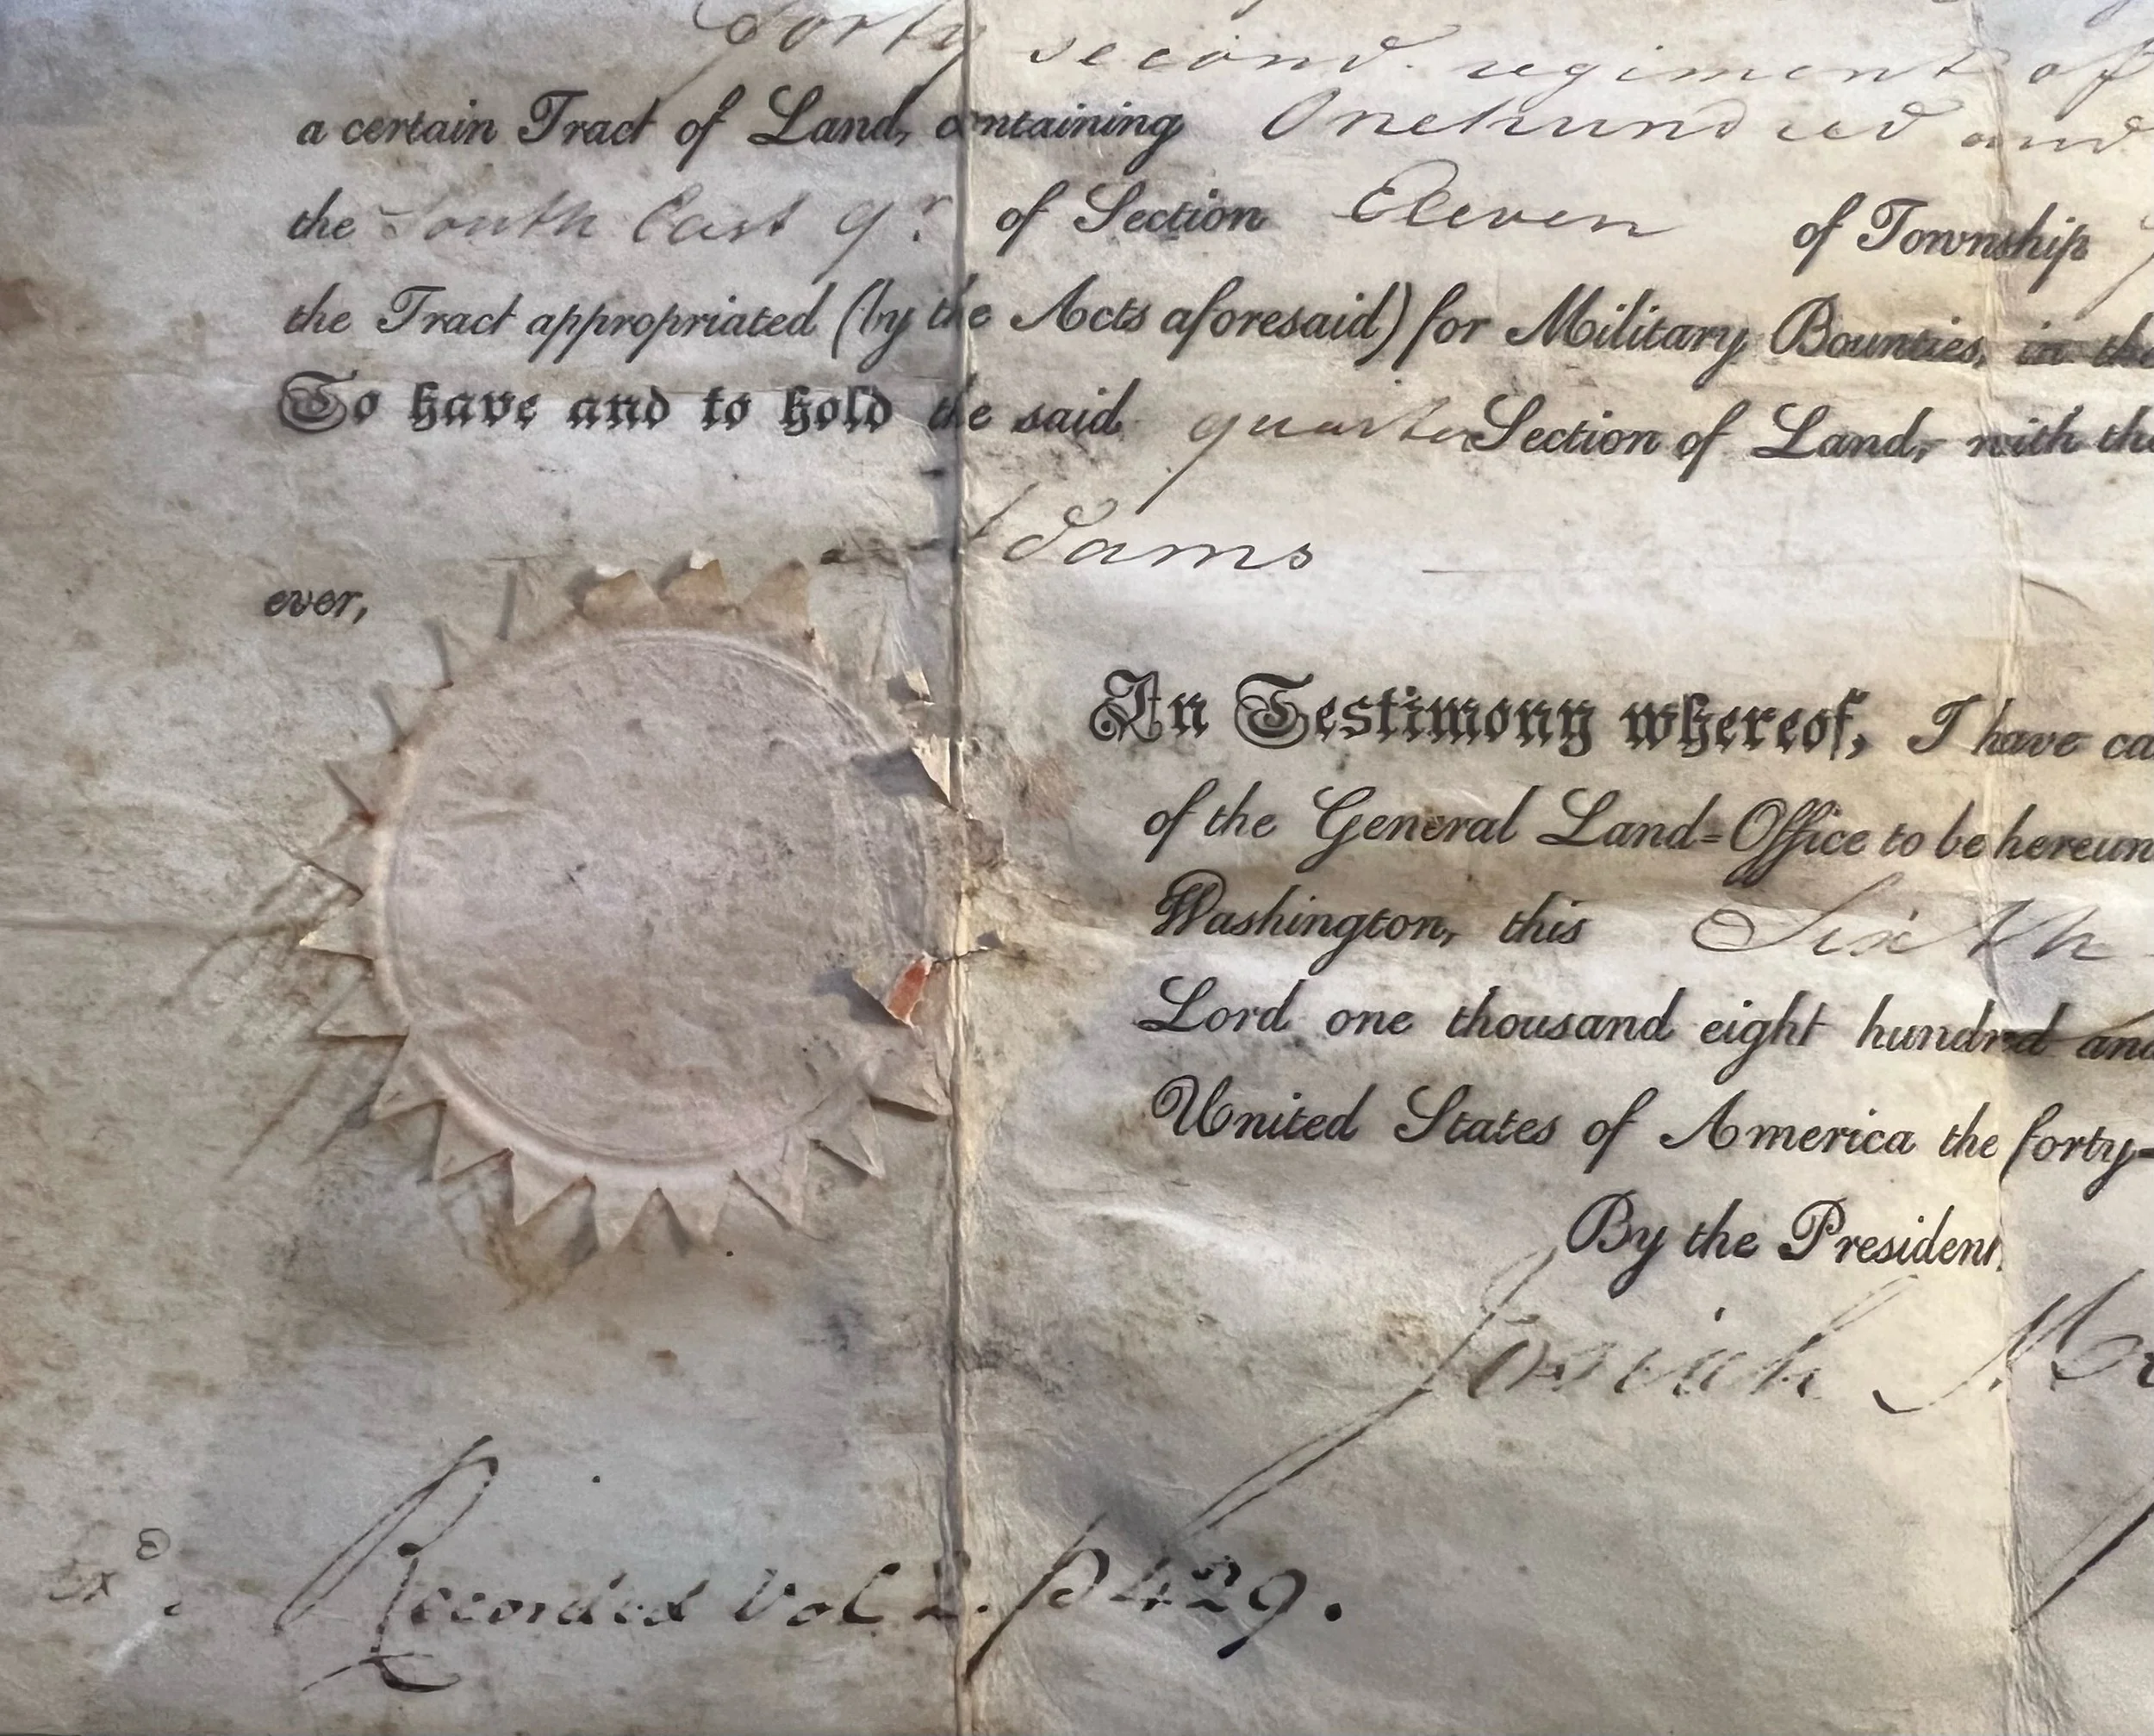 Forty second regiment of
a certain Tract of Land, containing Onehundred and
the South East qr. of Section Eleven of Township
the Tract appropriated (by the Acts aforesaid) for Military Bounties, in the
To have and to hold the said quarter Section of Land, with the
Adams
ever,
In Testimony whereof, I have ca
of the General Land=Office to be hereun
Washington, this Sixth
Lord one thousand eight hundred and
United States of America the forty-
By the President,
Josiah M
Exd
Recorded Vol 2. p 429.